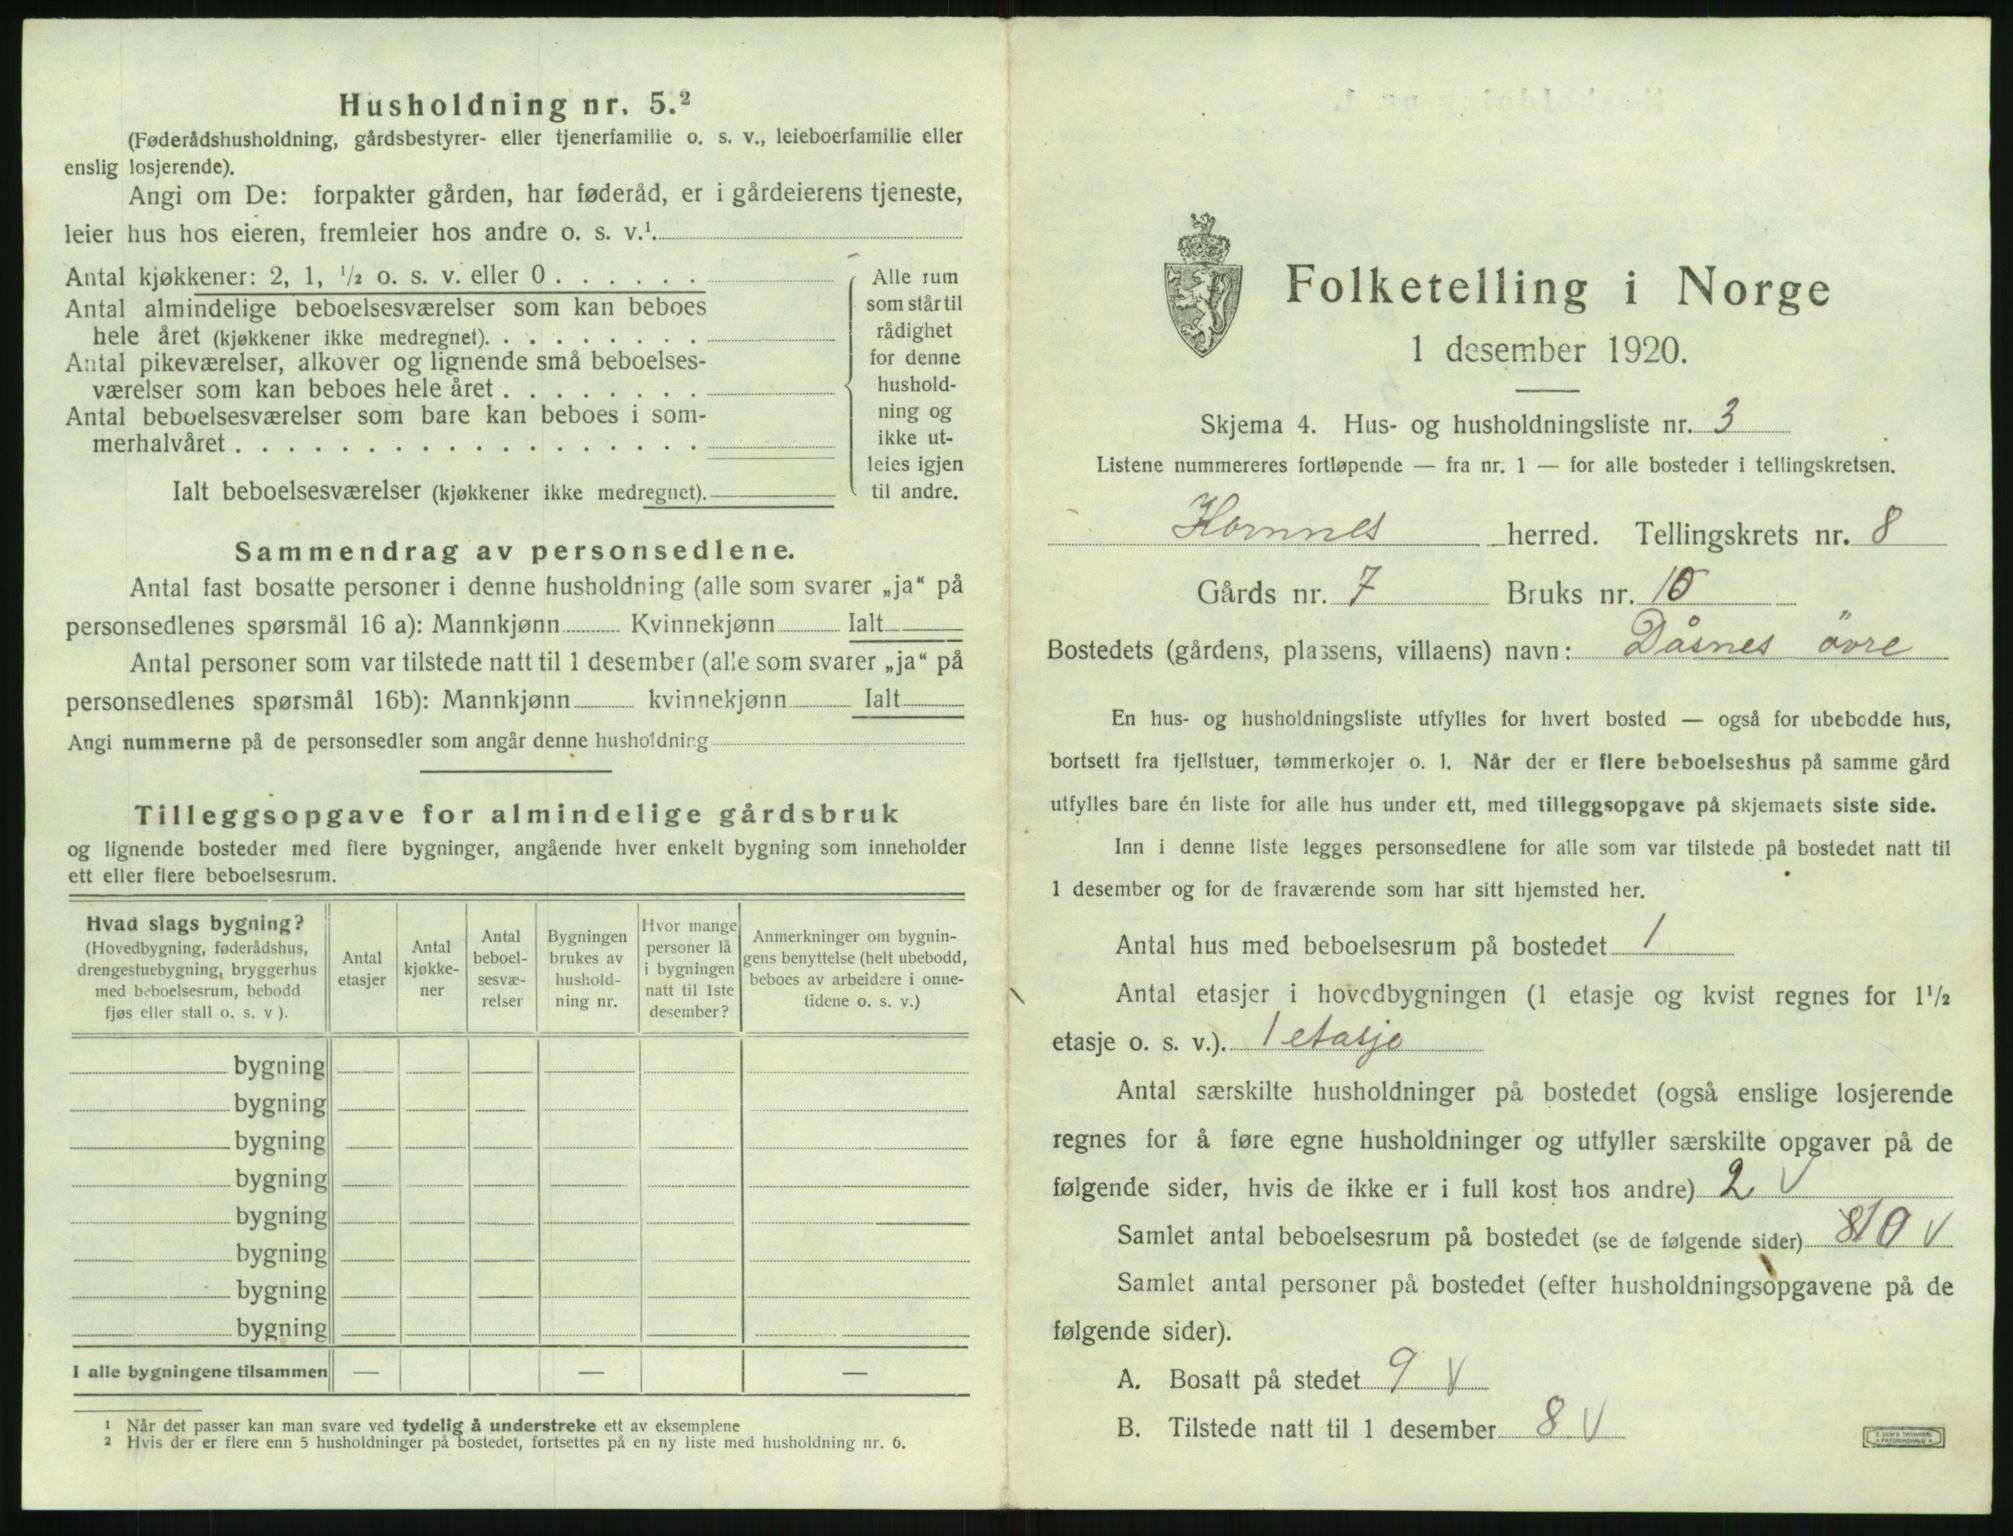 Husholdning nr. 5.²
(Føderådshusholdning, gårdsbestyrer- eller tjenerfamilie o. s. v., leieboerfamilie eller
enslig losjerende).
Angi om De: forpakter gården, har føderåd, er i gårdeierens tjeneste,
leier hus hos eieren, fremleier hos andre o. s. v.¹.
Antal kjøkkener: 2, 1, ½ o. s. v. eller 0 . . . . . .
Antal almindelige beboelsesværelser som kan beboes
hele året (kjøkkener ikke medregnet). . . . . . . . .
Antal pikeværelser, alkover og lignende små beboelses-
værelser som kan beboes hele året . . . . . . . .
Antal beboelsesværelser som bare kan beboes i som-
merhalvåret . . . . . . . . . . . . . . . . . .
Ialt beboelsesværelser (kjøkkener ikke medregnet).
Alle rum
som står til
rådighet
for denne
hushold-
ning og
ikke ut-
leies igjen
til andre.
Sammendrag av personsedlene.
Antal fast bosatte personer i denne husholdning (alle som svarer „ja“ på
personsedlenes spørsmål 16 a): Mannkjønn Kvinnekjønn Ialt
Antal personer som var tilstede natt til 1 desember (alle som svarer „ja“ på
personsedlenes spørsmål 16b): Mannkjønn kvinnekjønn Ialt
Angi nummerne på de personsedler som angår denne husholdning
Tilleggsopgave for almindelige gårdsbruk
og lignende bosteder med flere bygninger, angående hver enkelt bygning som inneholder
ett eller flere beboelsesrum.
Hvad slags bygning?
(Hovedbygning, føderådshus,
drengestuebygning, bryggerhus
med beboelsesrum, bebodd
fjøs eller stall o. s. v ).
Antal
etasjer
Antal
kjøkke-
ner
Antal
beboel-
sesvæ-
relser
Bygningen
brukes av
hushold-
ning nr.
Hvor mange
personer lå
i bygningen
natt til 1ste
desember?
Anmerkninger om bygnin-
gens benyttelse (helt ubebodd,
beboes av arbeidere i onne-
tidene o. s. v.)
bygning
bygning
bygning
bygning
bygning
bygning
bygning
bygning
I alle bygningene tilsammen — — —
¹ Når det passer kan man svare ved tydelig å understreke ett av eksemplene
² Hvis der er flere enn 5 husholdninger på bostedet, fortsettes på en ny liste med husholdning nr. 6.
Folketelling i Norge
1 desember 1920.
Skjema 4. Hus- og husholdningsliste nr. 3
Listene nummereres fortløpende — fra nr. 1 — for alle bosteder i tellingskretsen.
Hornnes herred. Tellingskrets nr. 8
Gårds nr. 7 Bruks nr. 10
Bostedets (gårdens, plassens, villaens) navn: Dåsnes övre
En hus- og husholdningsliste utfylles for hvert bosted — også for ubebodde hus,
bortsett fra fjellstuer, tømmerkojer o. l. Når der er flere beboelseshus på samme gård
utfylles bare én liste for alle hus under ett, med tilleggsopgave på skjemaets siste side.
Inn i denne liste legges personsedlene for alle som var tilstede på bostedet natt til
1 desember og for de fraværende som har sitt hjemsted her.
Antal hus med beboelsesrum på bostedet 1
Antal etasjer i hovedbygningen (1 etasje og kvist regnes for 1½
etasje o. s. v.). 1 etasje
Antal særskilte husholdninger på bostedet (også enslige losjerende
regnes for å føre egne husholdninger og utfyller særskilte opgaver på de
følgende sider, hvis de ikke er i full kost hos andre) 2 V
Samlet antal beboelsesrum på bostedet (se de følgende sider) 8 10 V
Samlet antal personer på bostedet (efter husholdningsopgavene på de
følgende sider).
A. Bosatt på stedet 9 V
B. Tilstede natt til 1 desember 8 V